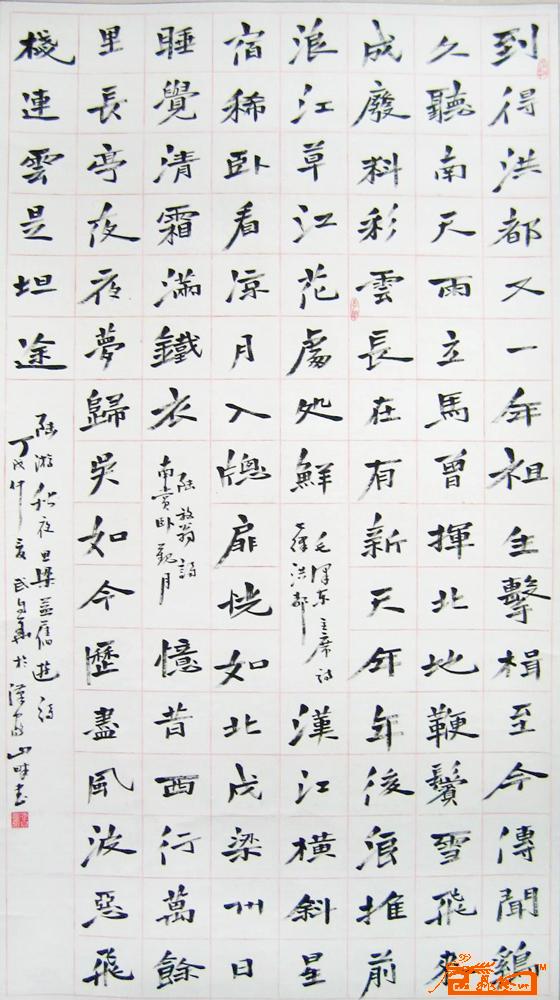 到得洪都又一年祖生擊楫至今傳聞鷄
久聽南天雨立馬曾揮北地鞭鬢雪飛來
成廢料彩雲長在有新天年年後浪推前
浪江草江花處処鮮
毛澤東主席詩
七律洪都
漢江橫斜星
宿稀卧看凉月入牕扉恍如北戍梁州日
睡覺清霜滿鐵衣
陸放翁詩
南卧觀月
憶昔西行萬餘
里長亭夜夜夢歸吳如今歷盡風波惡飛
棧連雲是坦途
陸游秋夜思梁益舊遊詩
丁夏武於漢山畔書